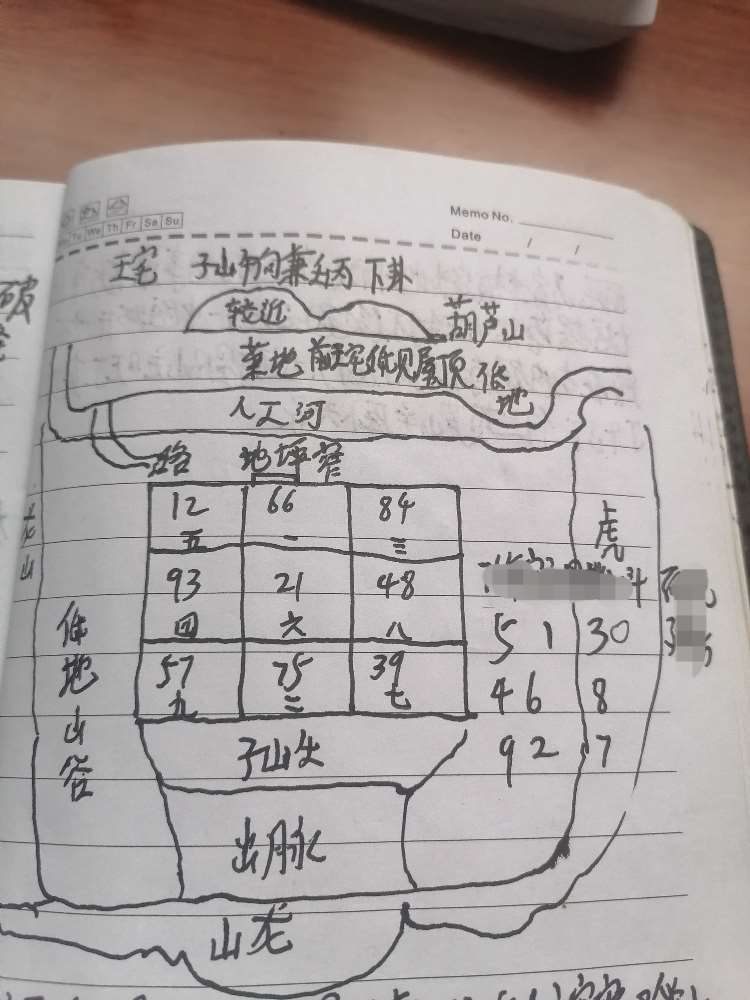 Memo No.
Tu We Th Fr Sa Su
Date / /
破
王宅 子山午向兼壬丙 下卦
较近
葫芦山
菜地 前王宅仅见屋顶 低地
人工河
路 地坪窄
12 66 84
五 一 三
虎
93 21 48
四 六 八
5 1 30
57 75 39
九 二 七
4 6 8
9 2 7
龙山
低地山谷
子山尖
出脉
山龙